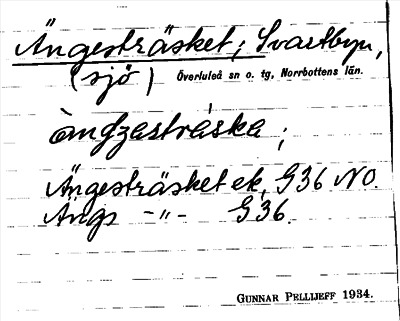 Ängesträsket; Svartbyn,
(sjö) Överluleå sn o. tg, Norrbottens län.
òmdzestrèska;
Ängesträsket ek, G36 NO.
Ängs -"- G36.
GUNNAR PELLIJEFF 1934.